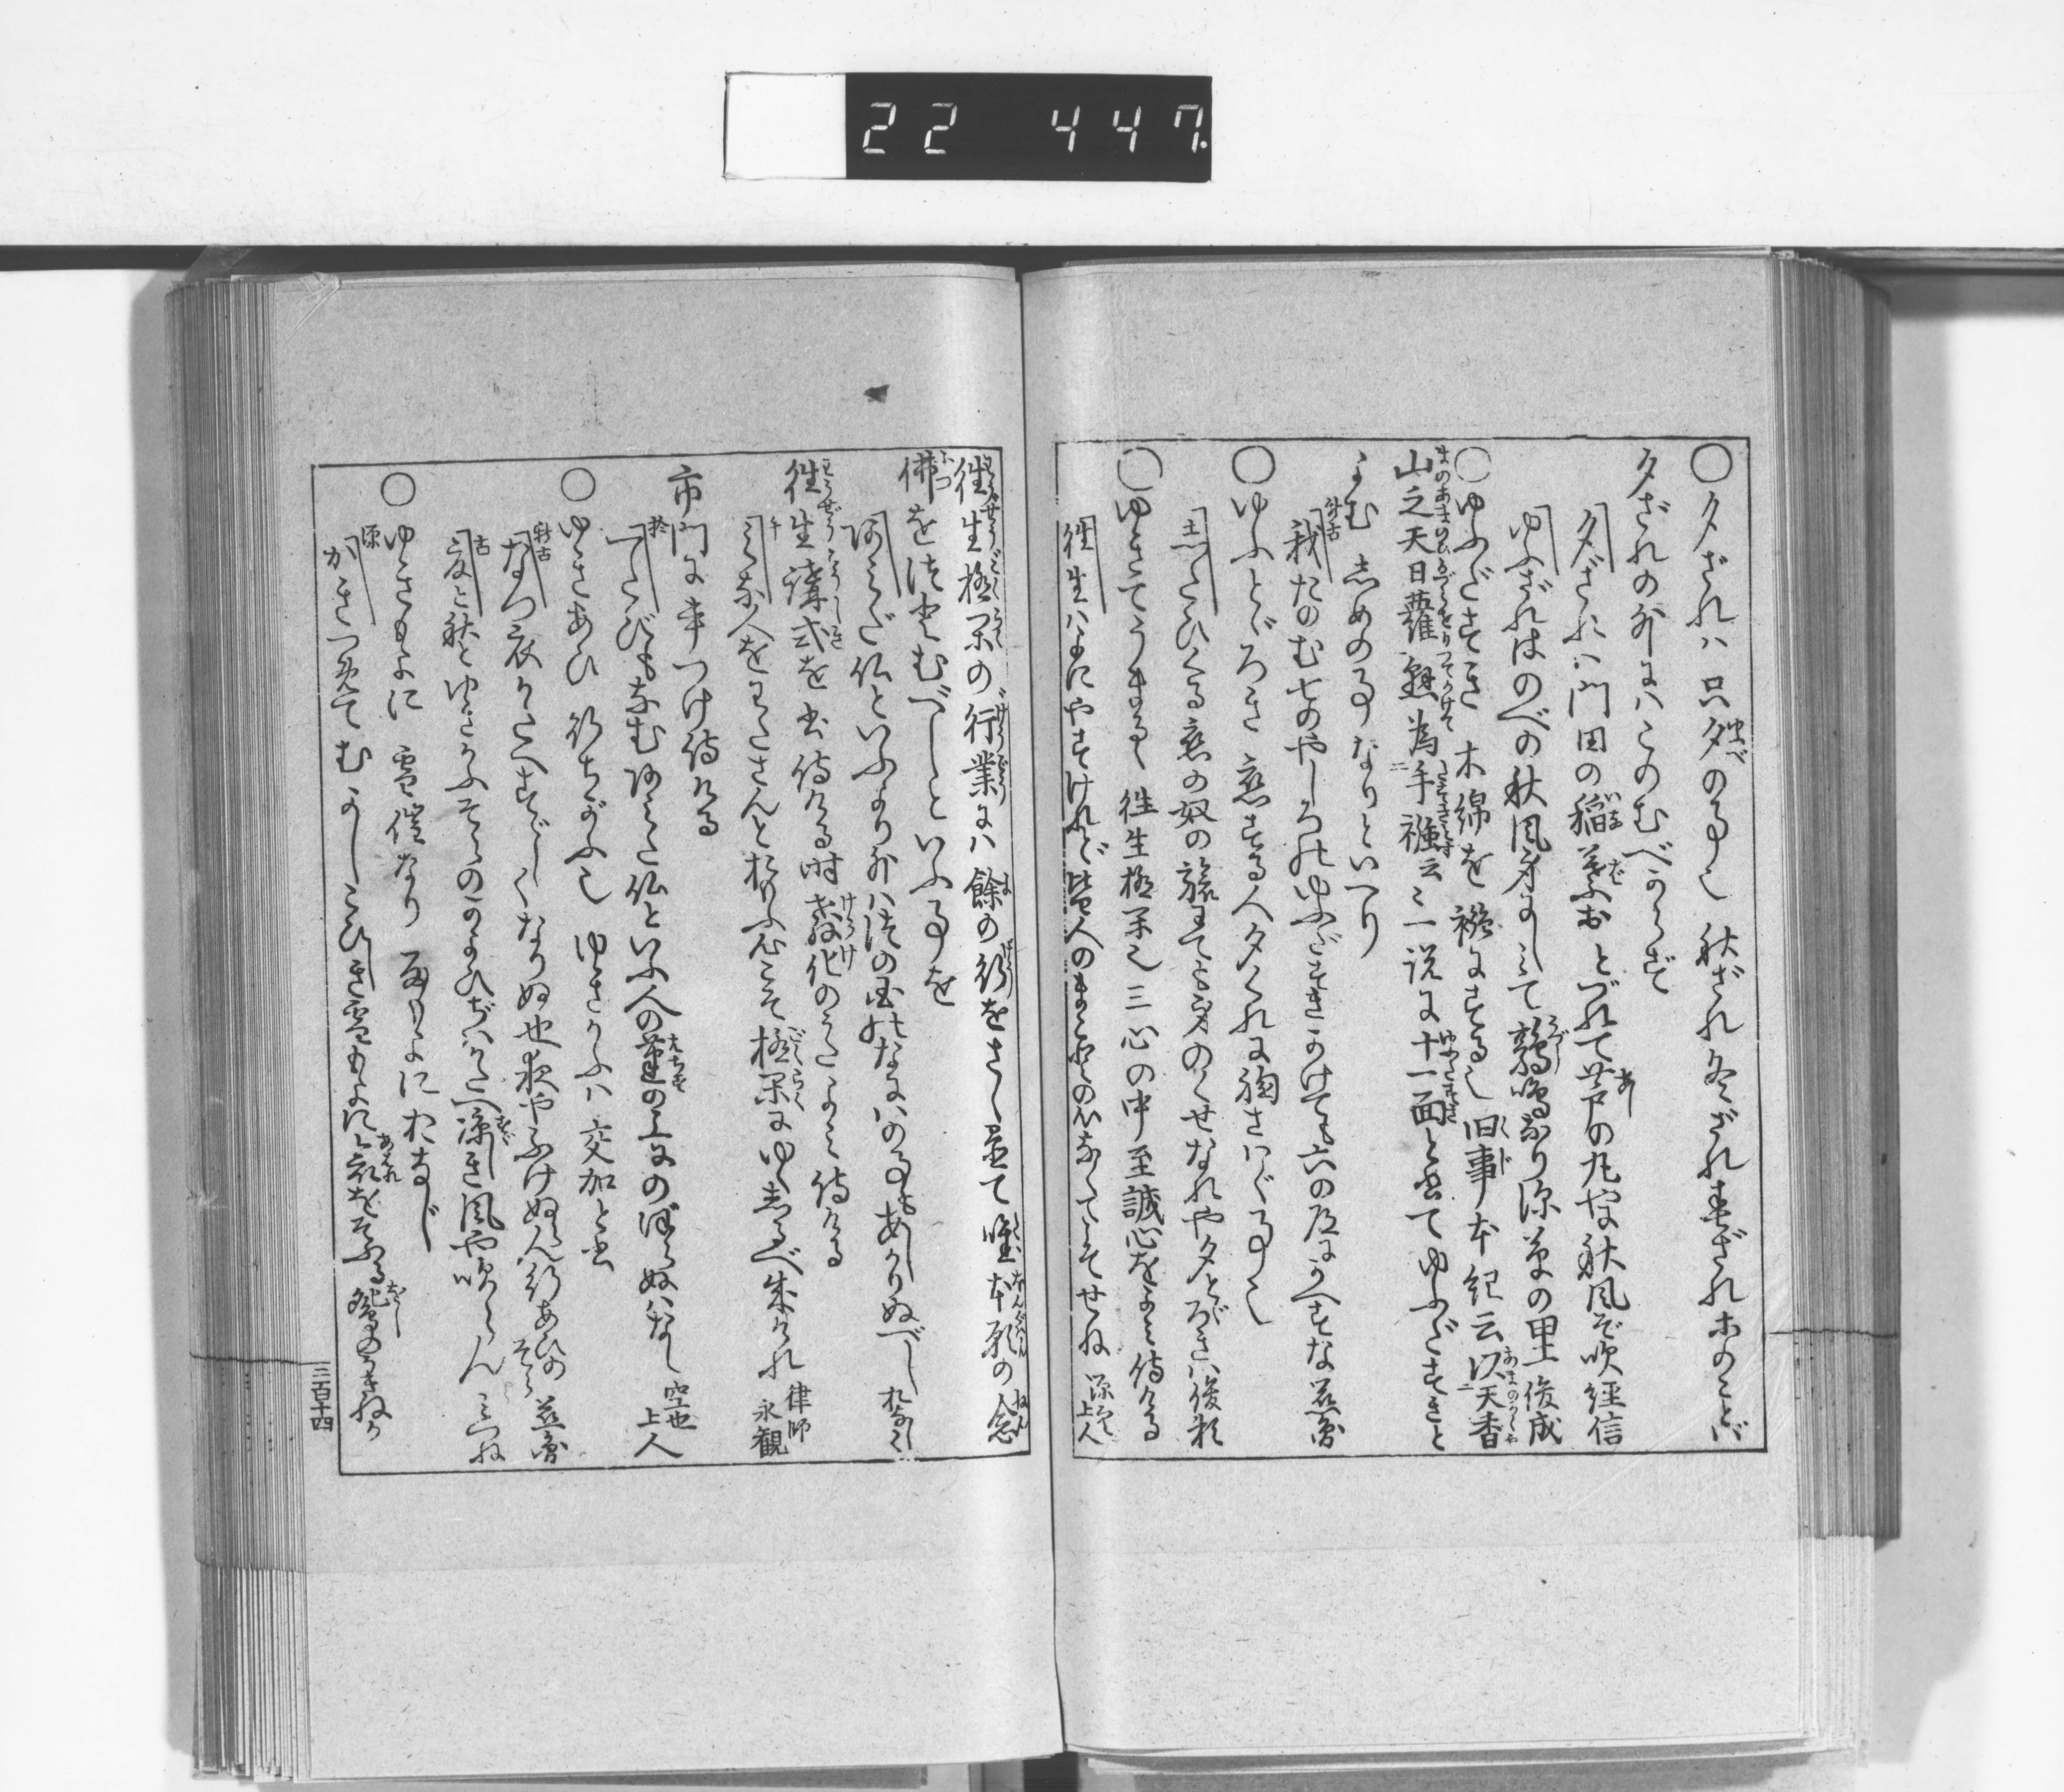 22 447.
○夕ざれハ 只夕の事也 秋ざれ冬ざれ春ざれ木のことば
夕ざれの外にハこのむべからず
夕ざれハ門田の稲葉おとづれて芦の丸やに秋風ぞ吹 経信
ゆふざれはのべの秋風身にしみて鶉鳴なり深草の里 俊成
○ゆふだすき 木綿を襷にする也 旧事本紀云以天香
山之天日蘿懸為手襁云々一説に十一面と書てゆふだすきと
よむ しめの事なりといへり
我たのむ七のやしろのゆふだすきかけても六の道にかへすな 慈圓
ゆふとゞろき 恋する人夕ぐれに胸さハぐ事也
ゆきてうまるゝ 往生極楽也 三心の中至誠心をよミ侍ける
往生ハよにやすけれど皆人のまことの心なくてこそせね 源空上人
往生極楽の行業にハ餘の行をさし置て唯本願の念
佛をつとむべしといふ事を
阿ミだ仏といふより外ハ津の国のなにハの事もあしかりぬべし おなじく
往生講式を書侍ける時教化のうたよミ侍ける
みな人をわたさんと思ふ心こそ極楽にゆくしるべ成けれ 律師永観
市門にかきつけ侍ける
一たびも南無阿ミだ仏といふ人の蓮の上にのぼらぬハなし 空也上人
○ゆきあひ 行ちがふ也 ゆきかふハ交加と書
なつ衣かたへすゞしくなりぬ也夜やふけぬらん行あひのそら 慈圓
夏と秋とゆきかふそらのかよひぢハかたへ涼しき風や吹らん ミつね
○ゆきもよに 雪催なり 雨もよにおなじ
かきつめてむかしこひしき雪もよに哀をそふる鴛のうきねか
三百十四